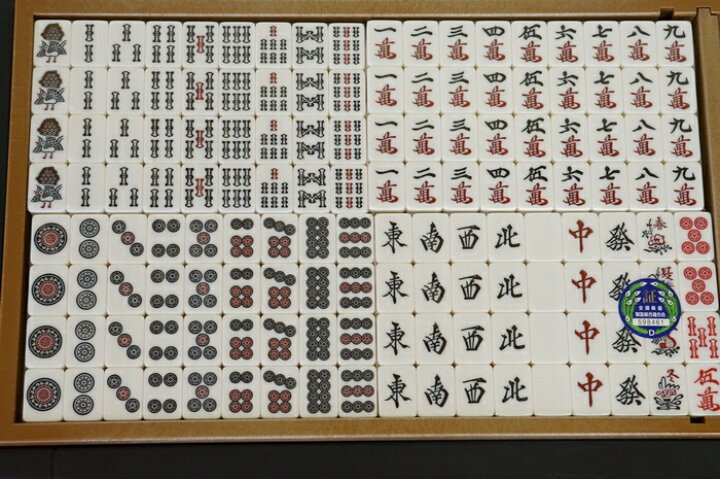 一 二 三 四 伍 六 七 八 九
萬 萬 萬 萬 萬 萬 萬 萬 萬
一 二 三 四 伍 六 七 八 九
萬 萬 萬 萬 萬 萬 萬 萬 萬
一 二 三 四 伍 六 七 八 九
萬 萬 萬 萬 萬 萬 萬 萬 萬
一 二 三 四 伍 六 七 八 九
萬 萬 萬 萬 萬 萬 萬 萬 萬
東 南 西 北 中 發 春
東 南 西 北 中 發
証
全国麻雀
598461
D
東 南 西 北 中 發
東 南 西 北 中 發 冬 伍
萬